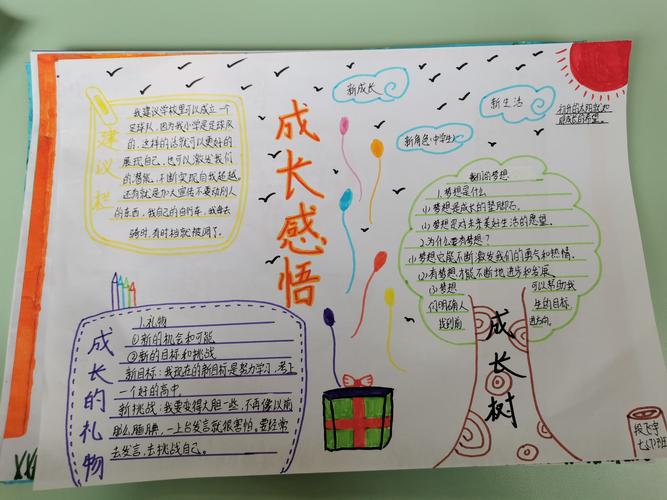 成长感悟
建议栏
我建议学校里可以成立一个
足球队，因为我小学是足球队
的，这样的话就可以更好的
展现自己，也可以激发我们
的潜能，不断实现自我超越。
还有就是加大宣传不要动别人
的东西，我自己的自行车，我每去
骑时，有时档就被调了。
新成长
新生活
新角色(中学生)
初升的太阳就如
同成长的希望。
我们的梦想
1.梦想是什么
(1)梦想是成长的垫脚石。
(2)梦想是对未来美好生活的愿望。
2.为什么要有梦想？
(1)梦想它能不断激发我们的勇气和热情，
(2)有梦想才能不断地进步和发展
(3)梦想 可以帮助我
们明确人 生的目标
找到前 进方向。
成长树
成长的礼物
1.礼物
①新的机会和可能
②新的目标和挑战
新目标：我现在的新目标是努力学习，考上
一个好的高中。
新挑战：我要变得大胆一些，不再像以前
那么腼腆，一上台发言就很害怕。要经常
去发言，去挑战自己。
段飞宇
七(7)班